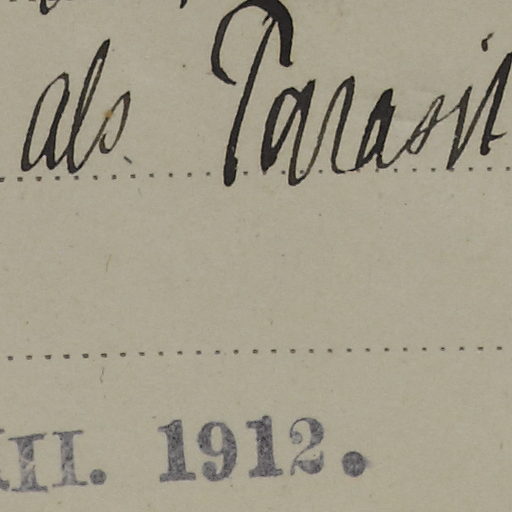 als Parasit
XII. 1912.